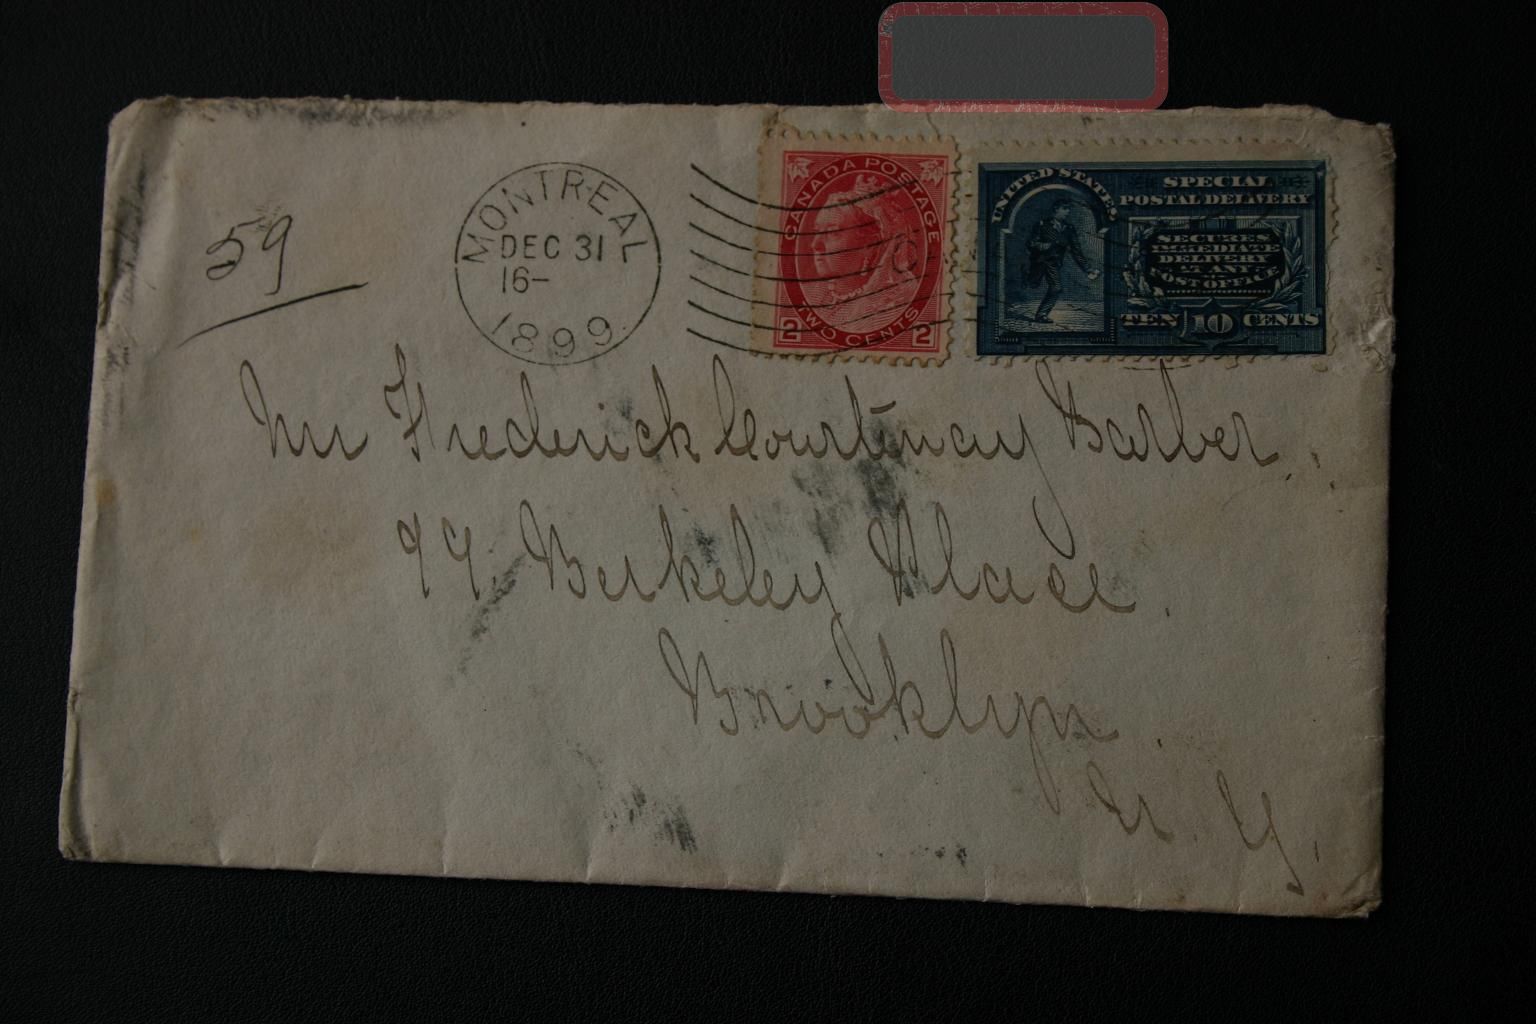 59
MONTREAL
DEC 31
16-
1899
CANADA POSTAGE
2 TWO CENTS 2
UNITED STATES
SPECIAL
POSTAL DELIVERY
SECURES
IMMEDIATE
DELIVERY
AT ANY
POST OFFICE
TEN 10 CENTS
Mr Frederick Courtenay Barber.
99. Berkeley Place.
Brooklyn.
N. Y.